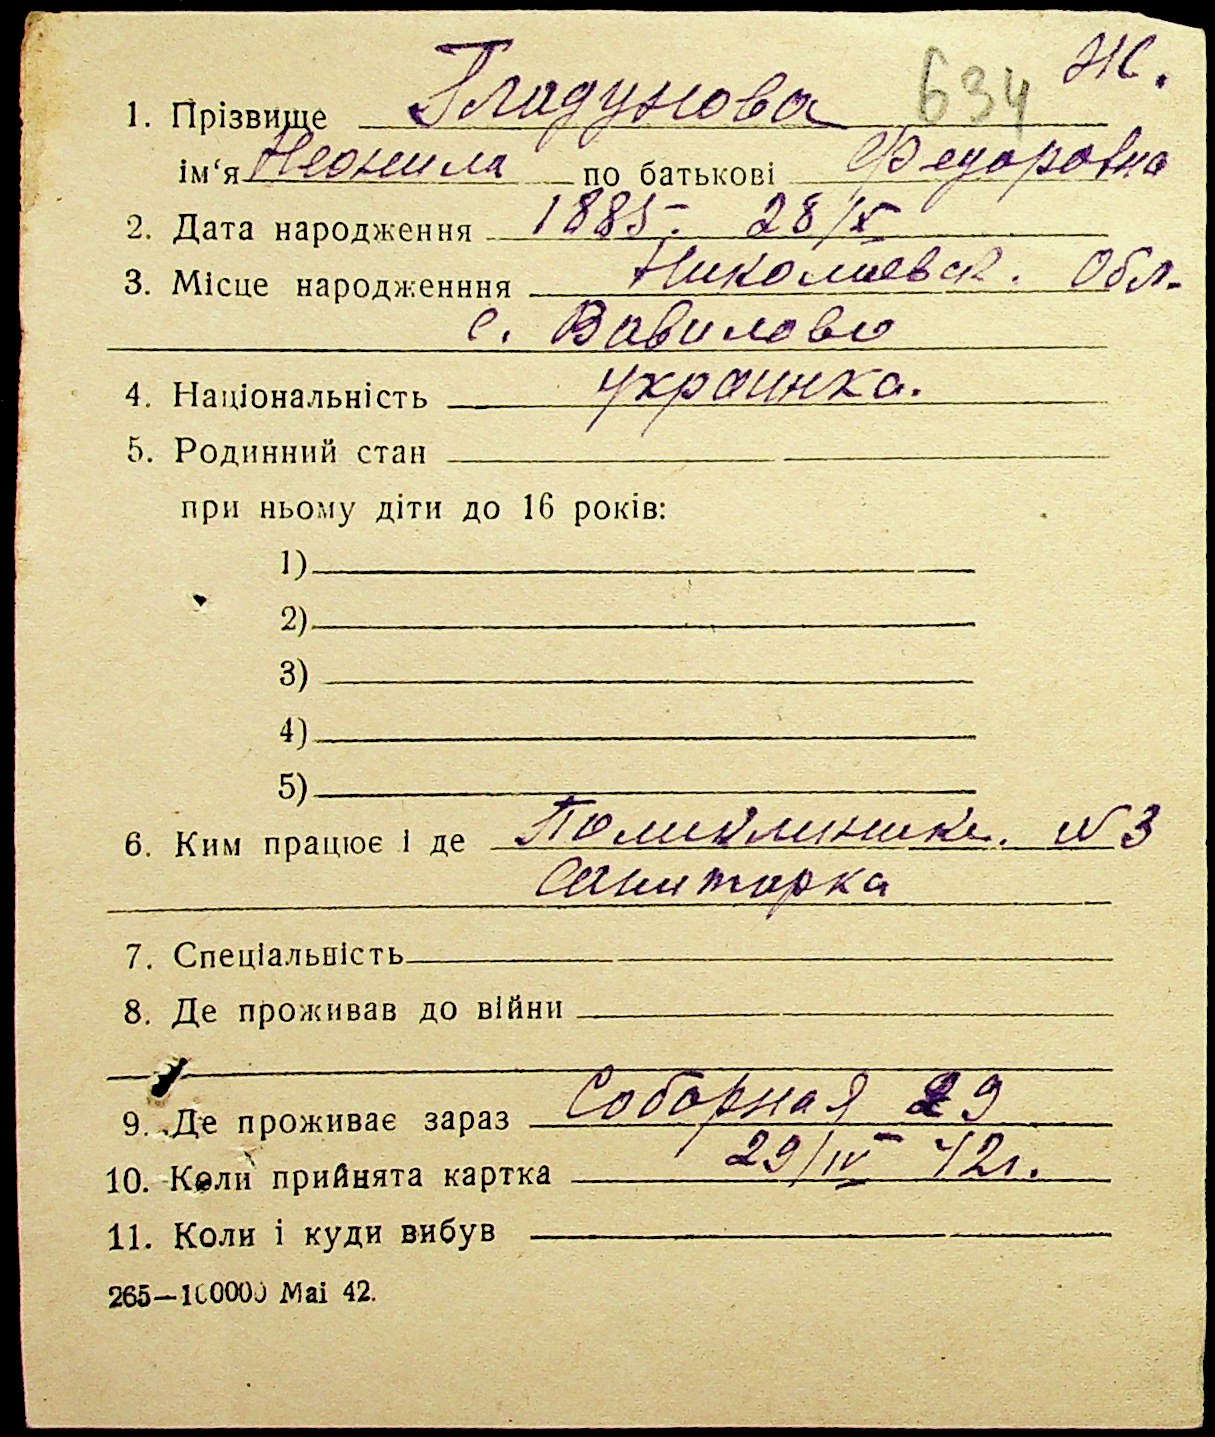 Ж.
634
1. Прізвище Гладунова
ім‘я Неонила по батькові Федоровна
2. Дата народження 1885. 28/X
3. Місце народженння Николаевск. Обл.
с. Вавилово
4. Національність украинка.
5. Родинний стан
при ньому діти до 16 років:
1)
2)
3)
4)
5)
6. Ким працює і де Поликлиника. №3
Санитарка
7. Спеціальність
8. Де проживав до війни
9. Де проживає зараз Соборная 29
10. Коли прийнята картка 29/IV 42г.
11. Коли і куди вибув
265—100000 Mai 42.